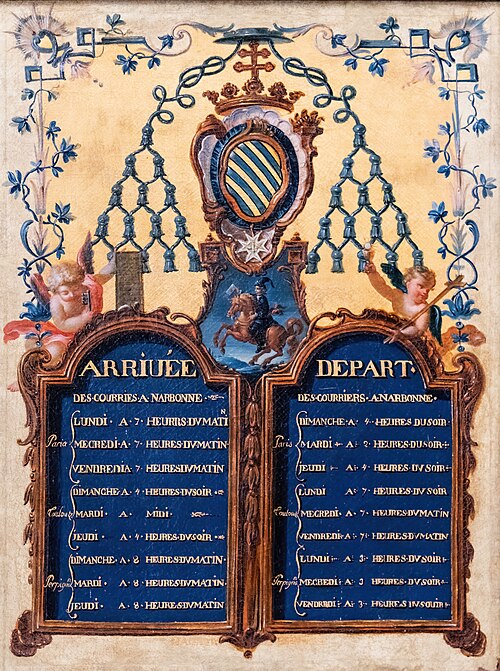 ARRIUÉE
DES·COURRIES·A·NARBONNE·
Paria
LUNDI · A · 7 · HEURES·DVMATIN
MECREDI·A· 7 · HEURES·DVMATIN
VENDREDIA· 7 · HEURES·DVMATIN
Toulouse
DIMANCHE·A· 4 · HEURES·DVSOIR
MARDI · A · MIDI ·
JEUDI · A · 4 · HEURES·DVSOIR
Perpagna
DIMANCHE·A· 8 HEURES·DVMATIN·
MARDI · A · 8 HEURES·DVMATIN·
JEUDI · A · 8 HEURES·DVMATIN
DEPART·
DES·COURRIERS·A·NARBONNE·
Paris
DIMANCHE·A· 4 · HEURES·DUSOIR·
MARDI · A · 2 · HEURES·DUSOIR
JEUDI · A · 4 · HEURES·DV SOIR
LUNDI A· 7 · HEURES·DV SOIR
MECREDY· A· 7· HEURES·DVMATIN
VENDREDI·A· 7· HEURES·DVMATIN
LUNDI · A· 3· HEURES·DVSOIR·
MECHEDI·A· 3 HEURES·DVSOIR·
VENDREDI· A· 3· HEURES·DVSOUIR